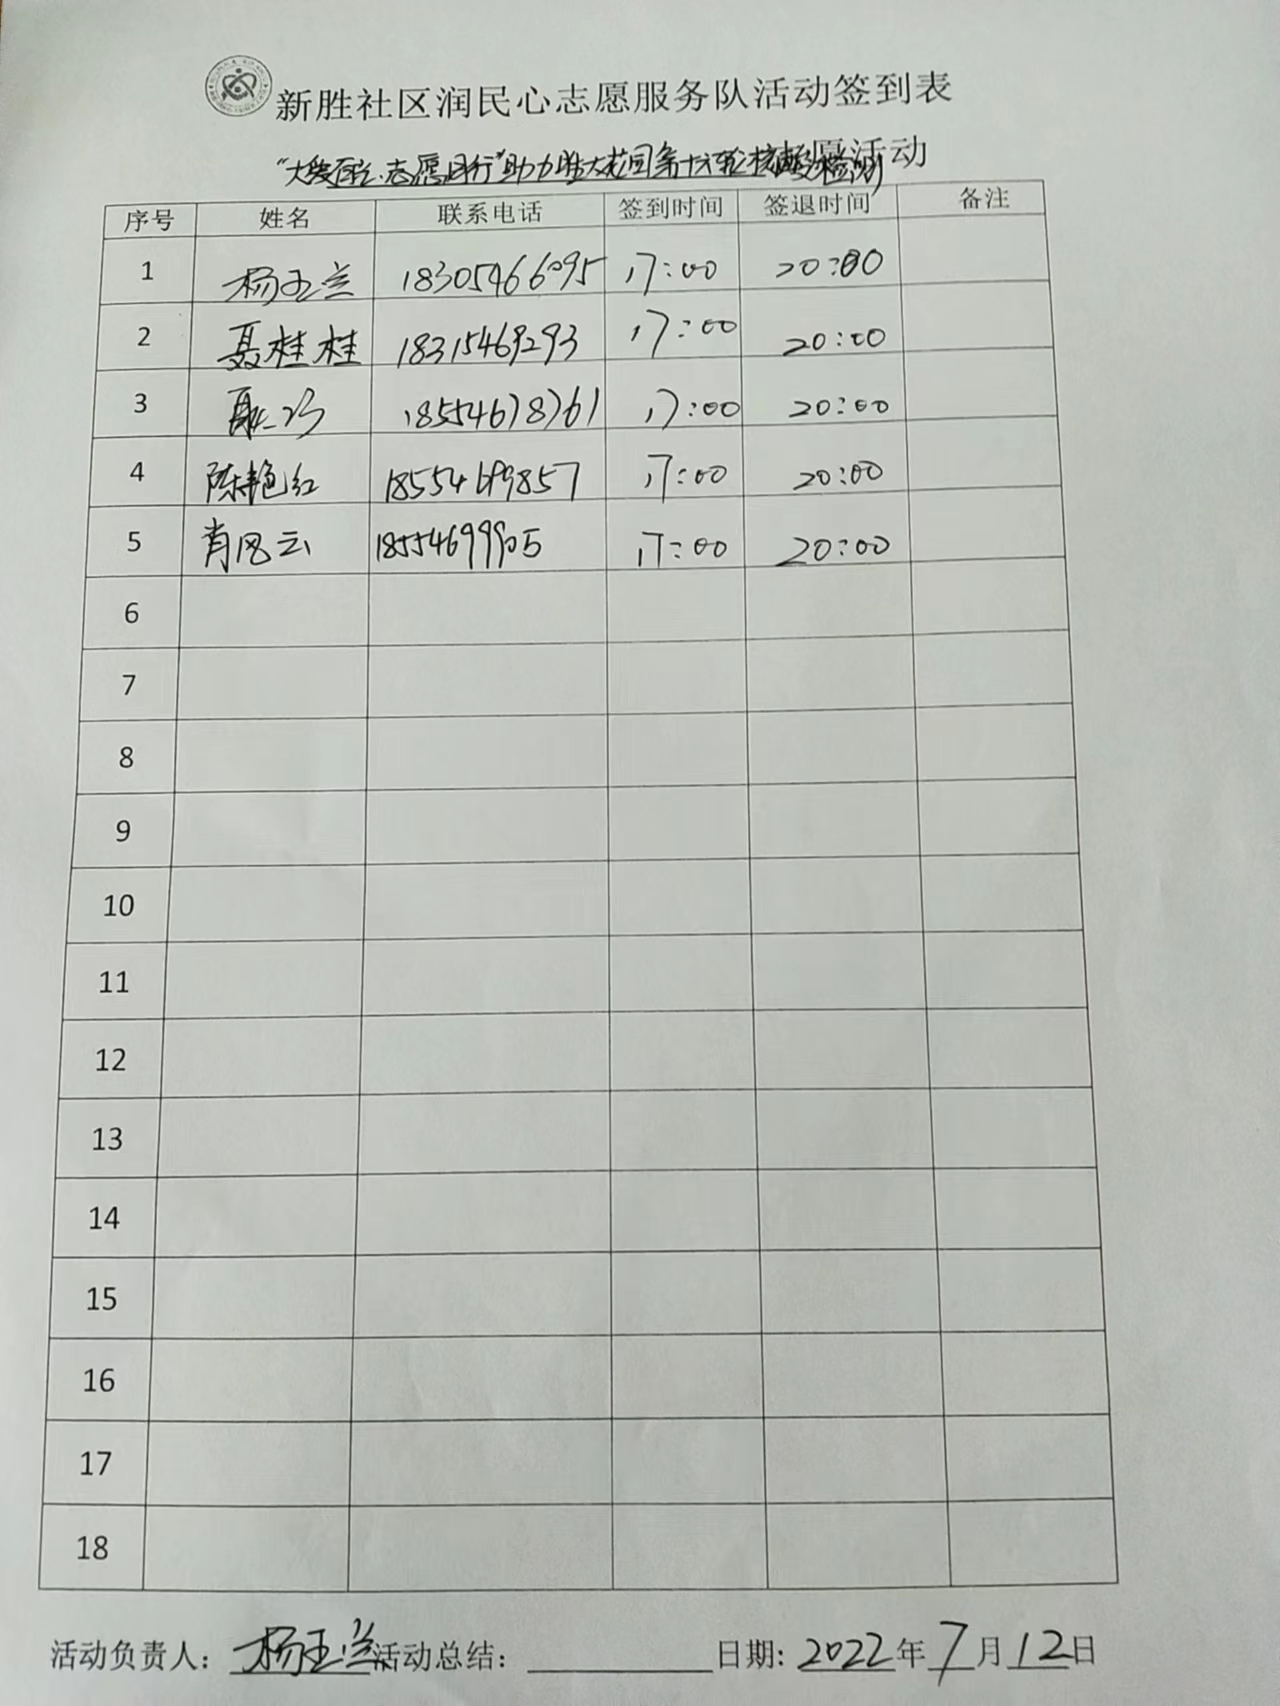 新胜社区润民心志愿服务队活动签到表
志愿同行"助力 第十六轮核酸检测 志愿活动
序号 姓名 联系电话 签到时间 签退时间 备注
1 杨玉兰 18305466095 17:00 20:00
2 聂桂桂 18315469293 17:00 20:00
3 18554678761 17:00 20:00
4 陈艳红 18554699857 17:00 20:00
5 肖风云 18554699905 17:00 20:00
6
7
8
9
10
11
12
13
14
15
16
17
18
活动负责人: 杨玉兰 活动总结: 日期: 2022年7月12日